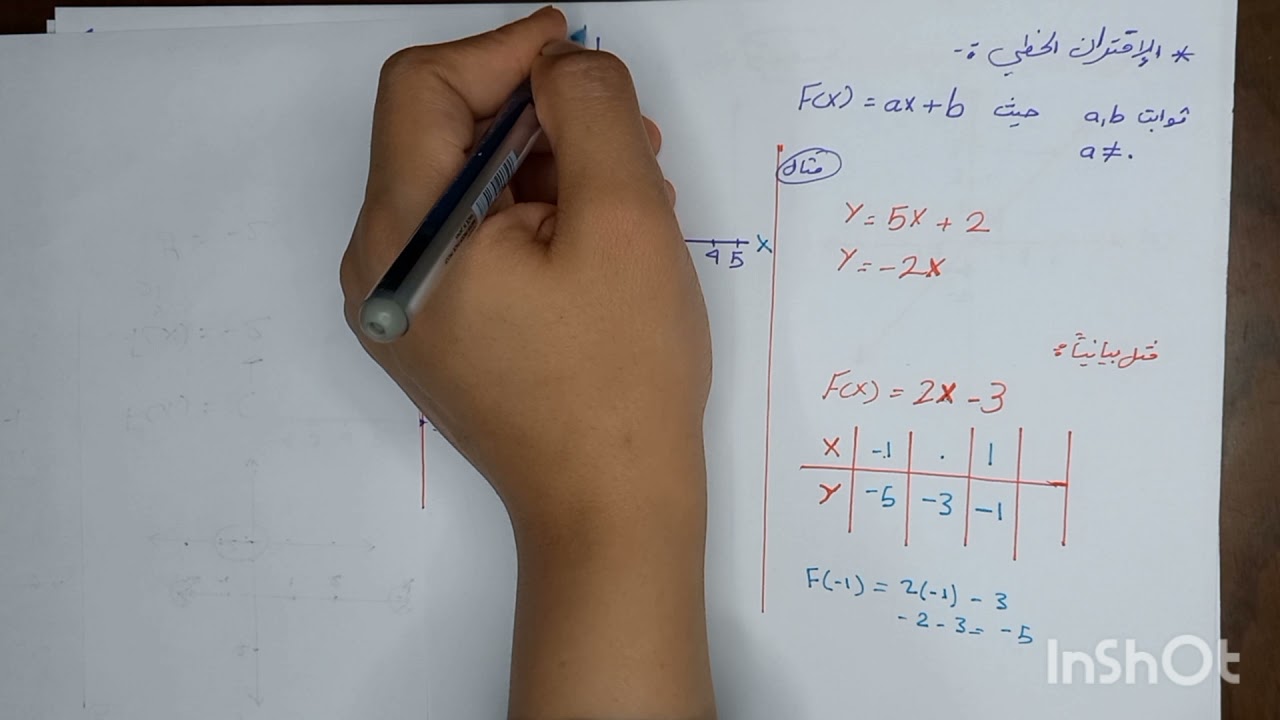 * الإقتران الخطي :-
F(x) = ax + b حيث a,b ثوابت
a ≠ .
مثال
y = 5x + 2
y = -2x
مثل بيانياً :
F(x) = 2x - 3
x -1 . 1
y -5 -3 -1
F(-1) = 2(-1) - 3
-2 - 3 = -5
4 5 x
InShOt